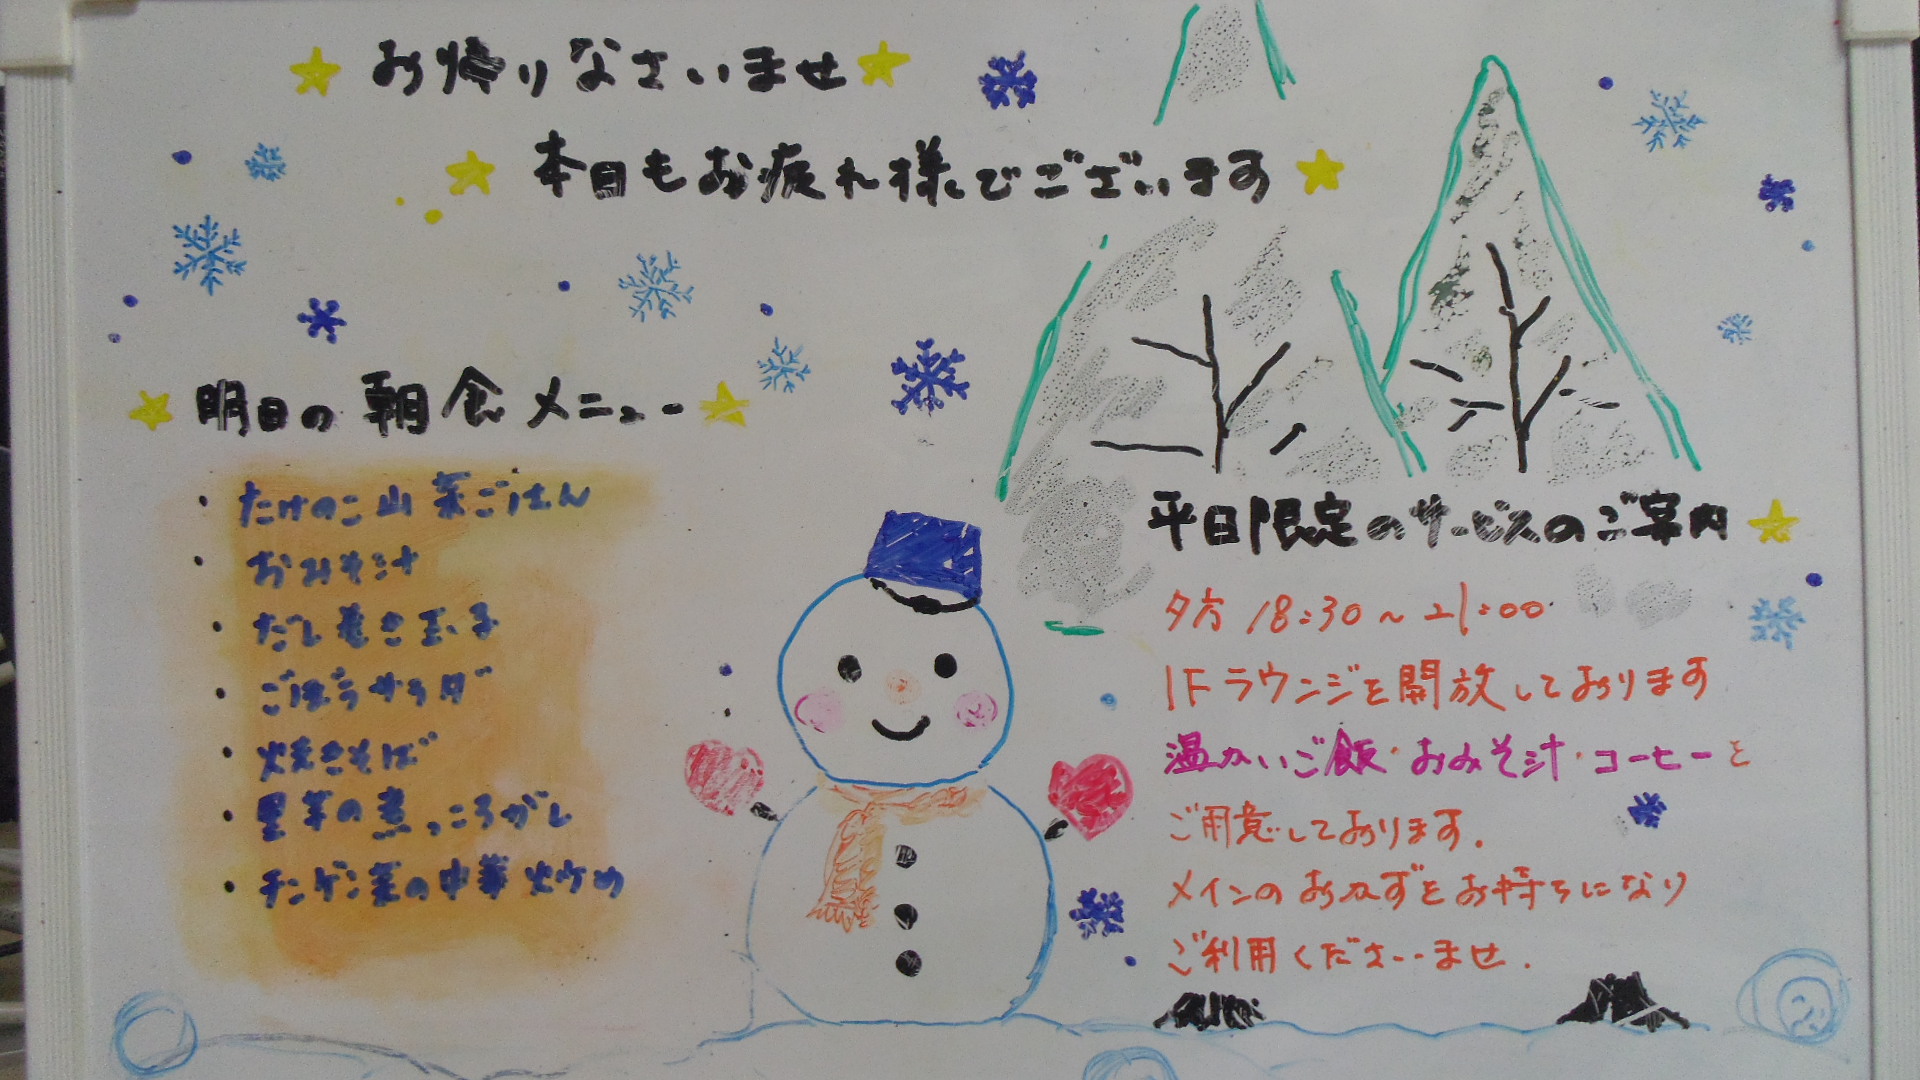 お帰りなさいませ
本日もお疲れ様でございます
明日の朝食メニュー
・たけのこ山菜ごはん
・おみそ汁
・だし巻き玉子
・ごぼうサラダ
・焼きそば
・里芋の煮っころがし
・チンゲン菜の中華炒め
平日限定のサービスのご案内
夕方 18:30~21:00
1Fラウンジを開放しております
温かいご飯・おみそ汁・コーヒーを
ご用意しております.
メインのおかずをお持ちになり
ご利用くださいませ.